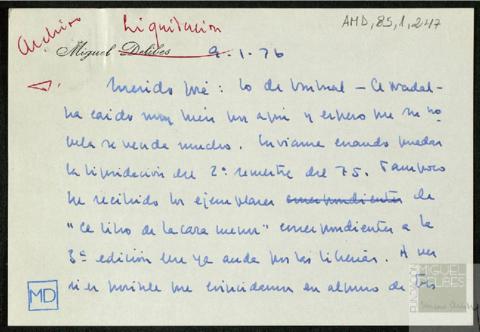 Archivo
Liquidación
AMD,85,1,247
Miguel Delibes
9-1-76
Querido José: lo de Umbral - el Nadal -
ha caído muy bien por aquí y espero que su no-
vela se venda mucho. Envíame cuando puedas
la liquidación del 2º semestre del 75. Tampoco
he recibido los ejemplares correspondientes de
"El libro de la caza menor" correspondientes a la
3ª edición que ya anda por las librerías. A ver
si es posible que coincidamos en alguno de
MD
FUNDACIÓN
MIGUEL
DELIBES